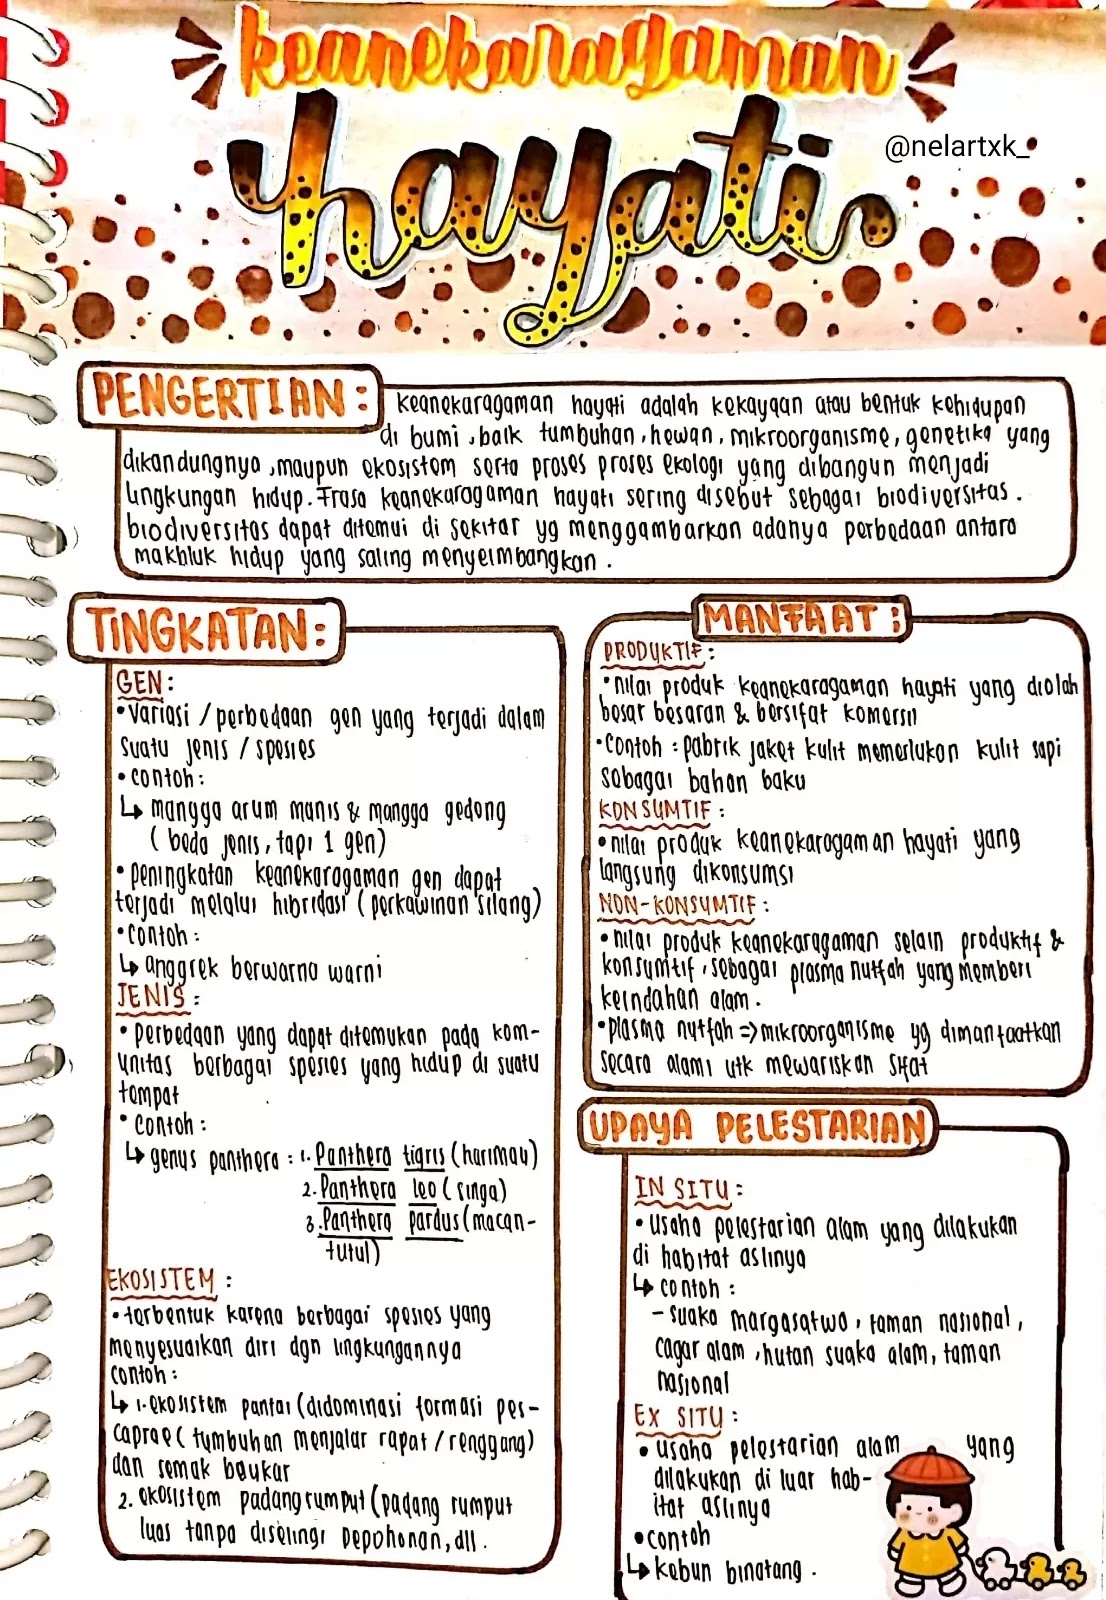 keanekaragaman
hayati
@nelartxk_
PENGERTIAN:
keanekaragaman hayati adalah kekayaan atau bentuk kehidupan
di bumi, baik tumbuhan, hewan, mikroorganisme, genetika yang
dikandungnya, maupun ekosistem serta proses proses ekologi yang dibangun menjadi
lingkungan hidup. Frasa keanekaragaman hayati sering disebut sebagai biodiversitas.
biodiversitas dapat ditemui di sekitar yg menggambarkan adanya perbedaan antara
makhluk hidup yang saling menyeimbangkan.
TINGKATAN:
GEN:
• variasi / perbedaan gen yang terjadi dalam
suatu jenis / spesies
• contoh:
↳ mangga arum manis & mangga gedong
( beda jenis, tapi 1 gen)
• peningkatan keanekaragaman gen dapat
terjadi melalui hibridasi ( perkawinan silang)
• contoh:
↳ anggrek berwarna warni
JENIS:
• perbedaan yang dapat ditemukan pada kom-
unitas berbagai spesies yang hidup di suatu
tempat
• contoh:
↳ genus panthera : 1. Panthera tigris (harimau)
2. Panthera leo ( singa)
3. Panthera pardus (macan-
tutul)
EKOSISTEM :
• terbentuk karena berbagai spesies yang
menyesuaikan diri dgn lingkungannya
contoh:
↳ 1. ekosistem pantai (didominasi formasi pes-
caprae ( tumbuhan menjalar rapat / renggang)
dan semak beukar
2. ekosistem padang rumput (padang rumput
luas tanpa diselingi pepohonan, dll.
MANFAAT :
PRODUKTIF :
• nilai produk keanekaragaman hayati yang diolah
besar besaran & bersifat komersil
• Contoh : pabrik jaket kulit memerlukan kulit sapi
sebagai bahan baku
KONSUMTIF :
• nilai produk keanekaragaman hayati yang
langsung dikonsumsi
NON-KONSUMTIF :
• nilai produk keanekaragaman selain produktif &
konsumtif, sebagai plasma nutfah yang memberi
keindahan alam.
• plasma nutfah => mikroorganisme yg dimanfaatkan
secara alami utk mewariskan sifat
UPAYA PELESTARIAN
IN SITU :
• usaha pelestarian alam yang dilakukan
di habitat aslinya
↳ contoh :
- suaka margasatwa, taman nasional,
cagar alam, hutan suaka alam, taman
nasional
EX SITU :
• usaha pelestarian alam yang
dilakukan di luar hab-
itat aslinya
• contoh
↳ kebun binatang.